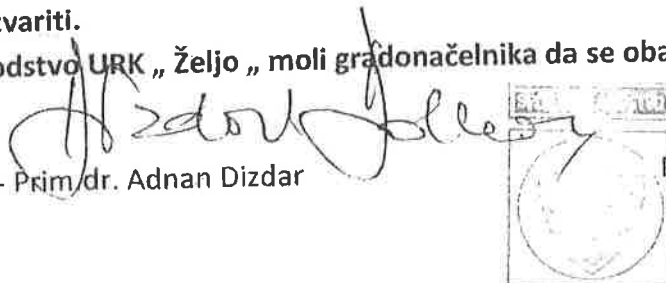 variti.
odstvo URK „ Željo „ moli gradonačelnika da se oba
- Prim dr. Adnan Dizdar